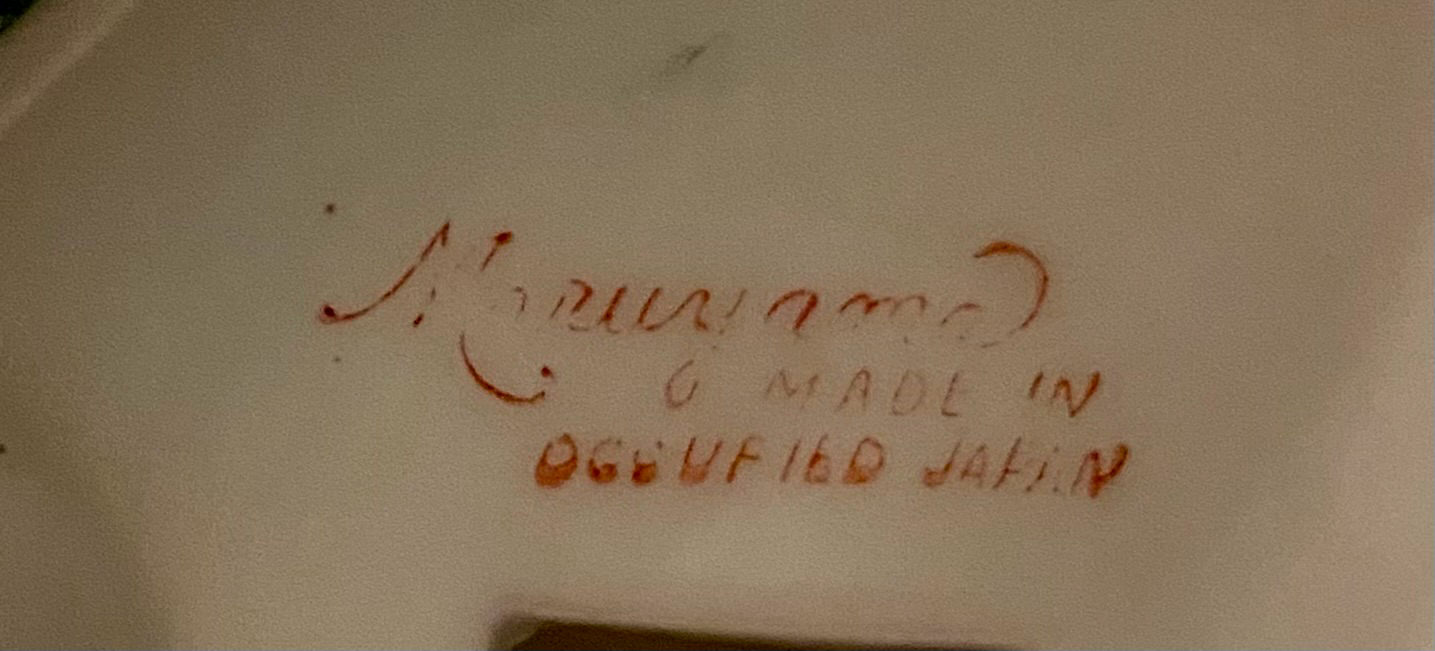 Maruyama
6 MADE IN
OCCUPIED JAPAN